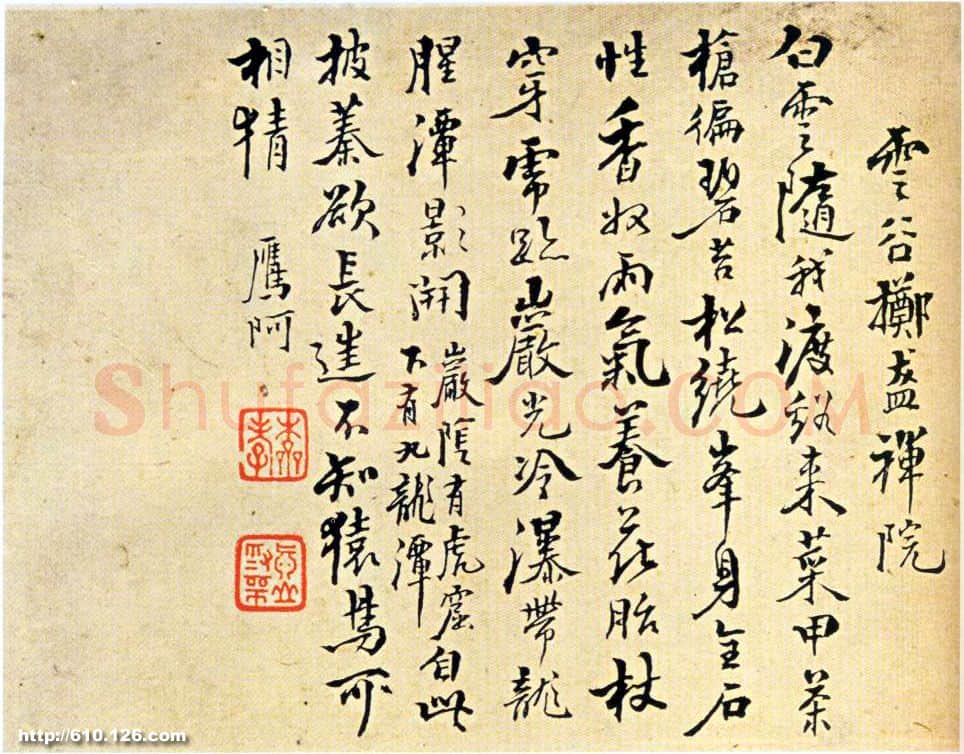 雲谷擲盋禪院
白雲隨我渡谿来菜甲茶
槍徧碧苔松繞峯身全石
性香收雨氣養花胎杖
穿虎跡巖光冷瀑帶龍
腥潭影開
巖陰有虎窟
下有九龍潭
自此
披蓁欲長往不知猿鳥可
相猜 鷹阿
Shufaziliao.COM
http://610.126.com